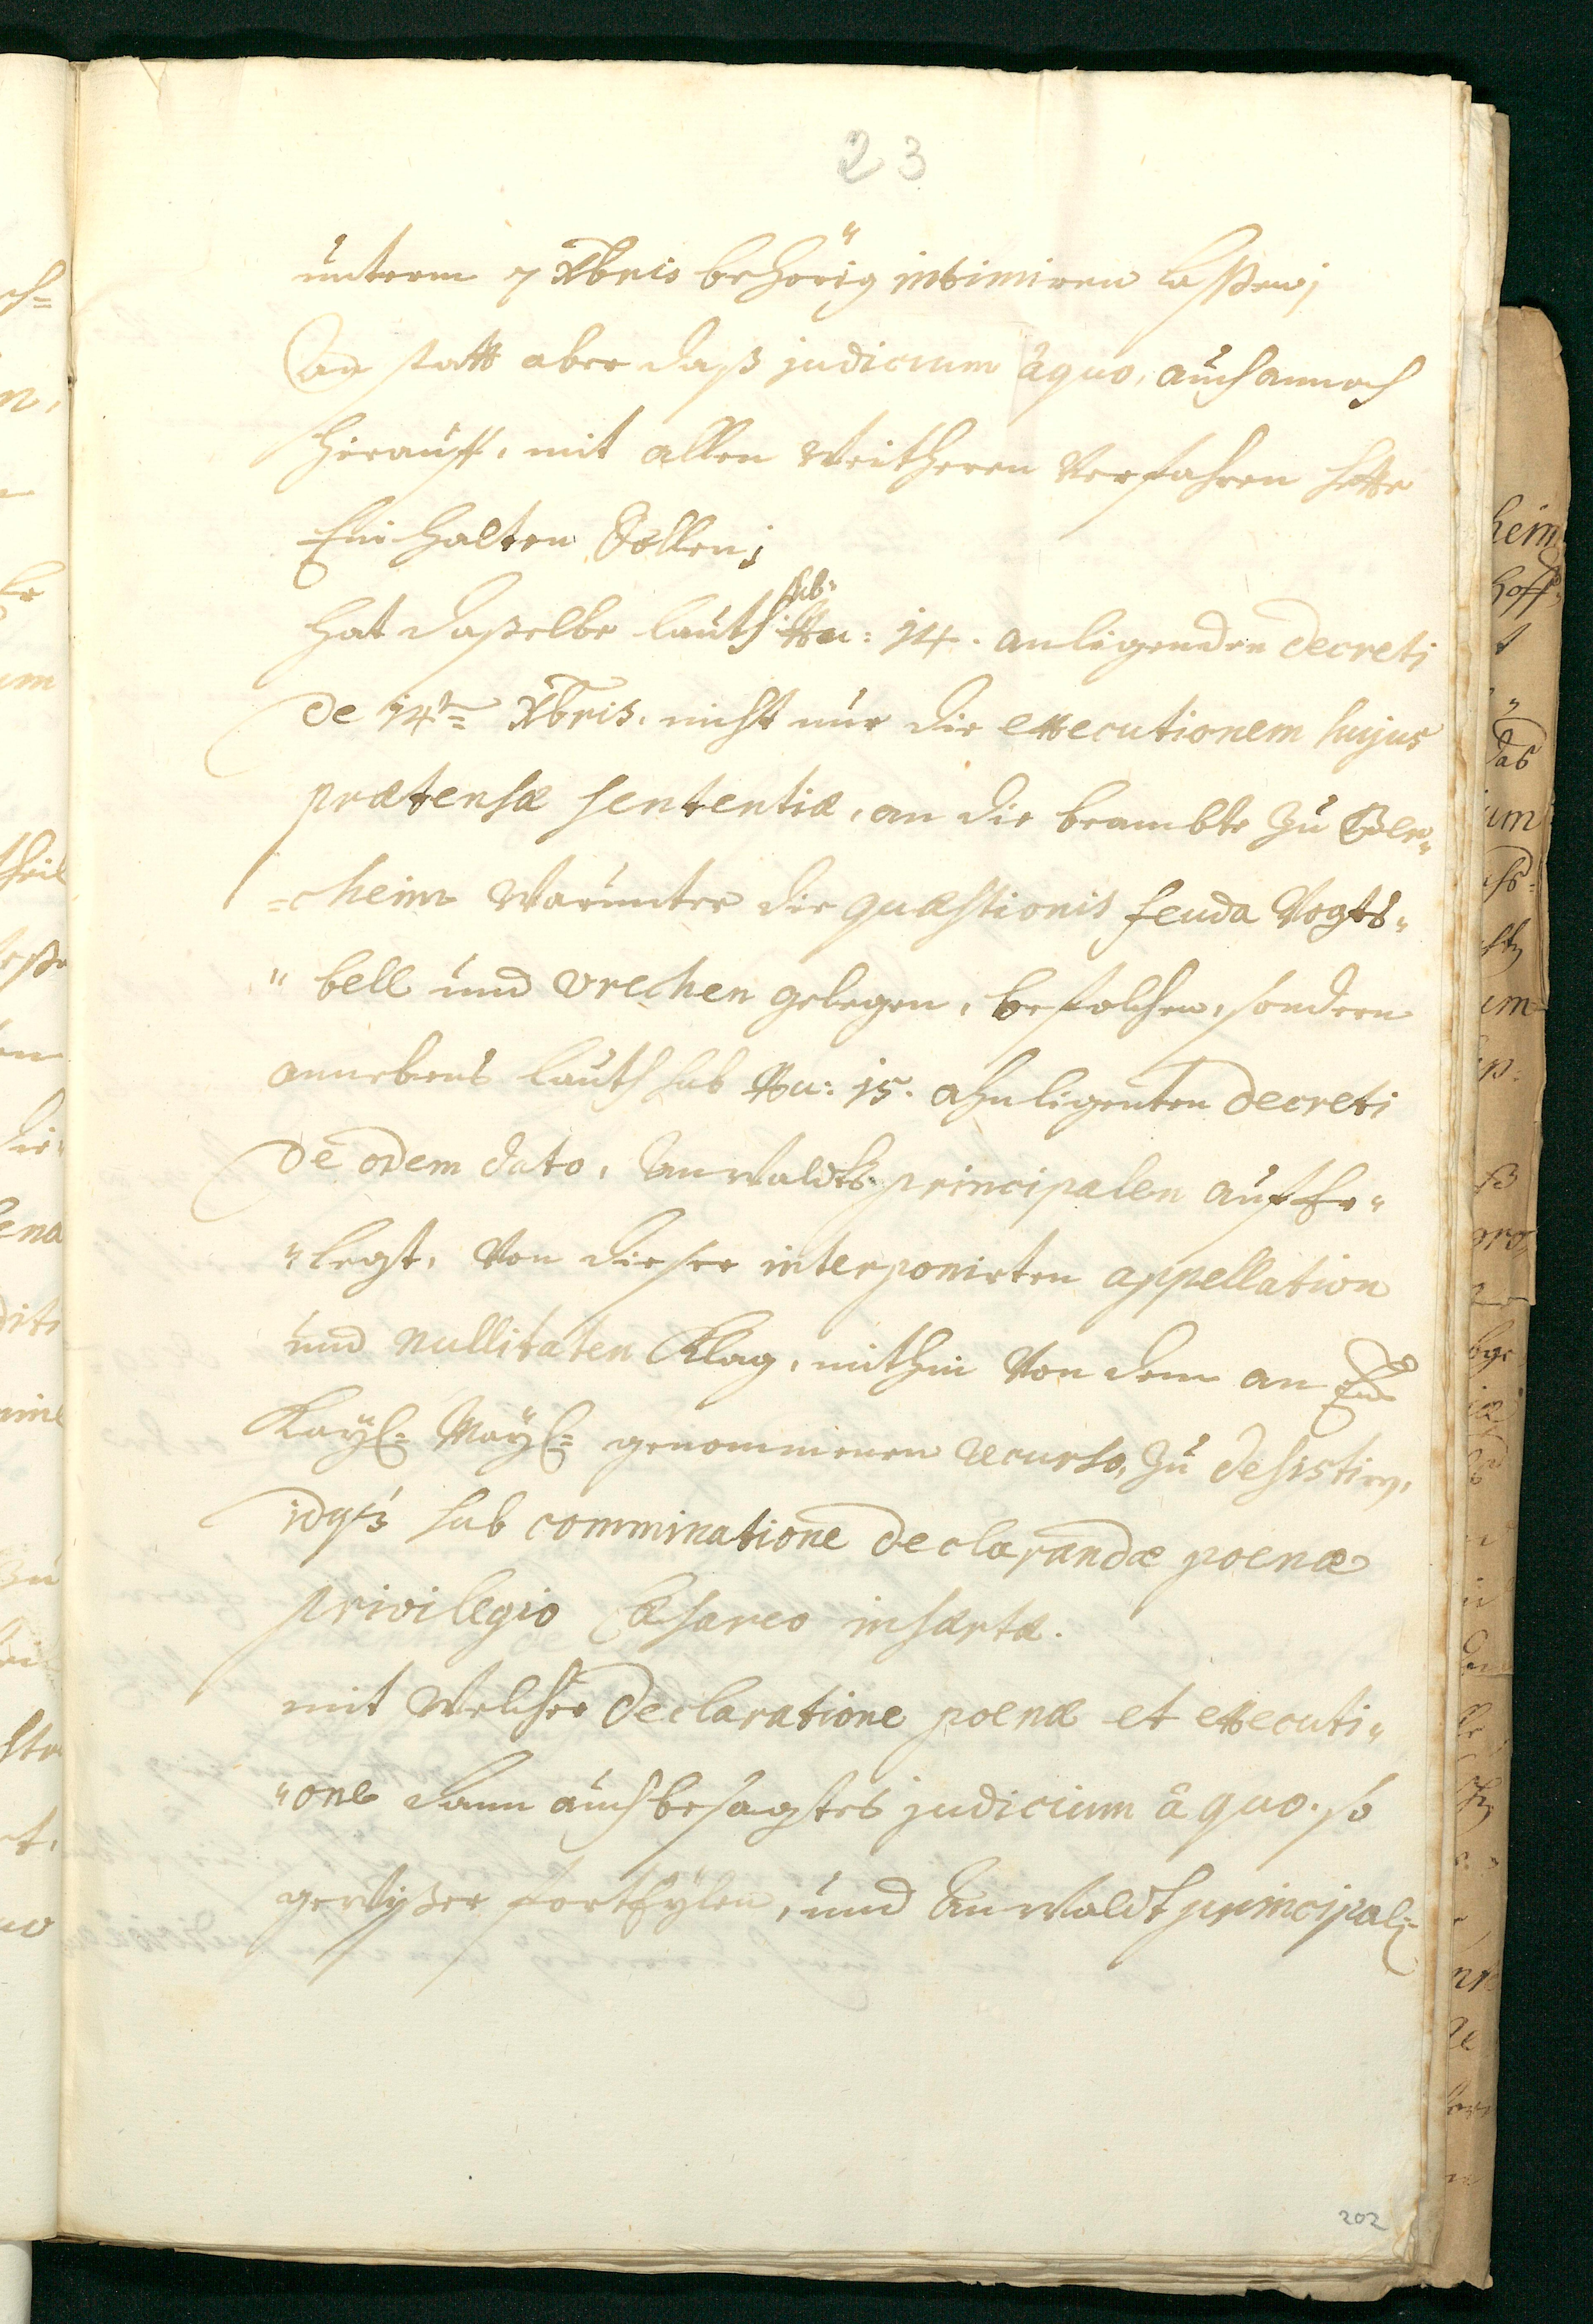 23
unterm 7 Xbris behörig intimiren laßen;
An statt aber daß judicium à quo, auch annoch
hierauff, mit allen weitheren verfahren hette
Einhalten sollen;
hat daßelbe lauth sub: Nu: 14. anligenden decreti
de 14ten Xbris. nicht nur die executionem hujus
prætensæ sententiæ, an die beambte zu Ber„
=cheim warunter die quæstionis feuda Vogts„
„bell und Vrechen gelegen, befolchen, sondern
annebens lauth sub Nu: 15. ahnligenten decreti
de odem dato, Anwaldts principalen aufer„
„legt, von dieser interponirten appellation
und nullitaten Klag, mithin von dem an Ew
Kayl: Mayl: genommenen recurso, zu desistirn,
idqs sub comminatione declarandæ poenæ
privilegio Cæsareo insertæ.
mit welcher declaratione poenæ et executi„
„one dann auch besagtes judicium à quo. so
gewißer fortEylen, und Anwaldt principal:
202